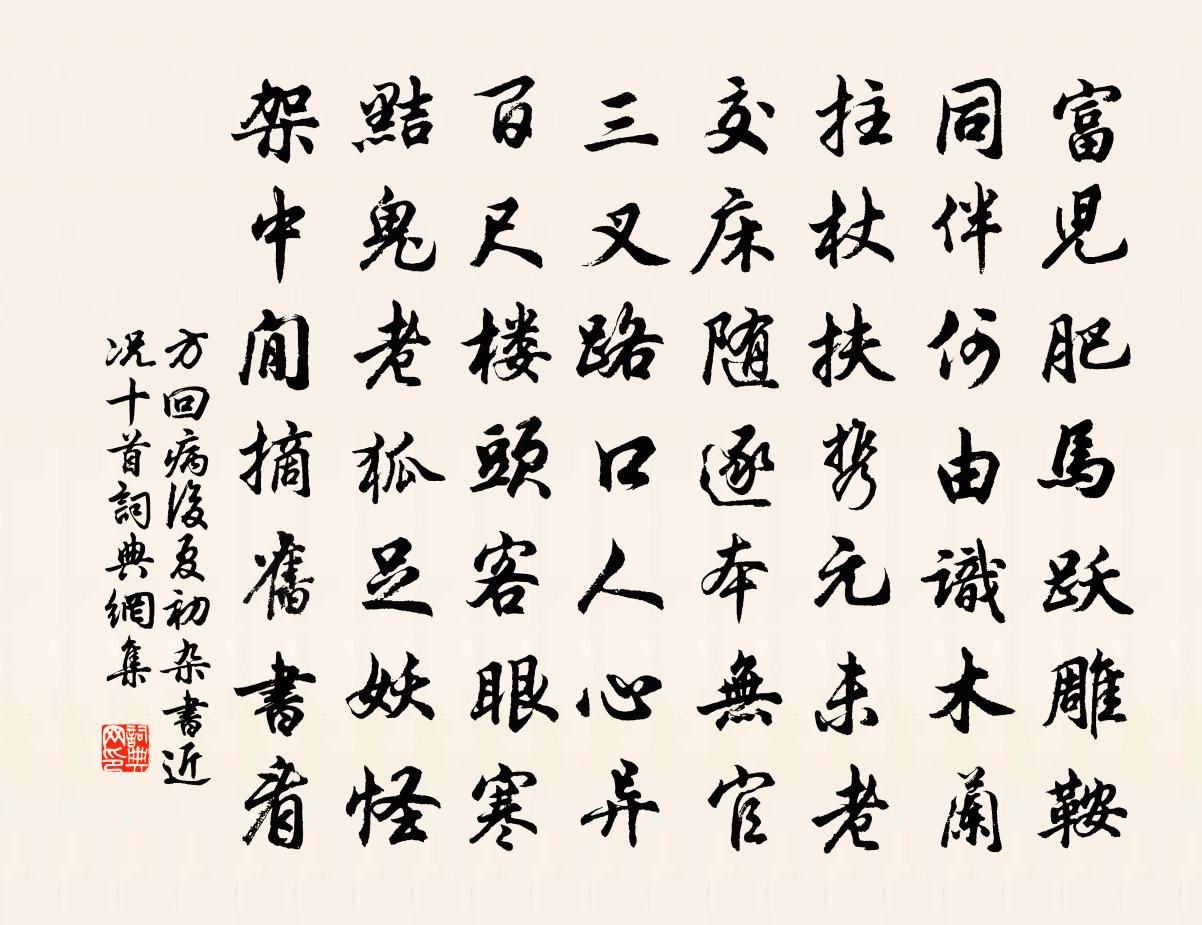 富児肥馬跃雕鞍
同伴何由識木蘭
拄杖扶携元未老
交床随逐本無官
三叉路口人心异
百尺楼頭客眼寒
黠鬼老狐足妖怪
架中閒摘舊書看
方回病後夏初杂書近
况十首詞典網集
詞典网印